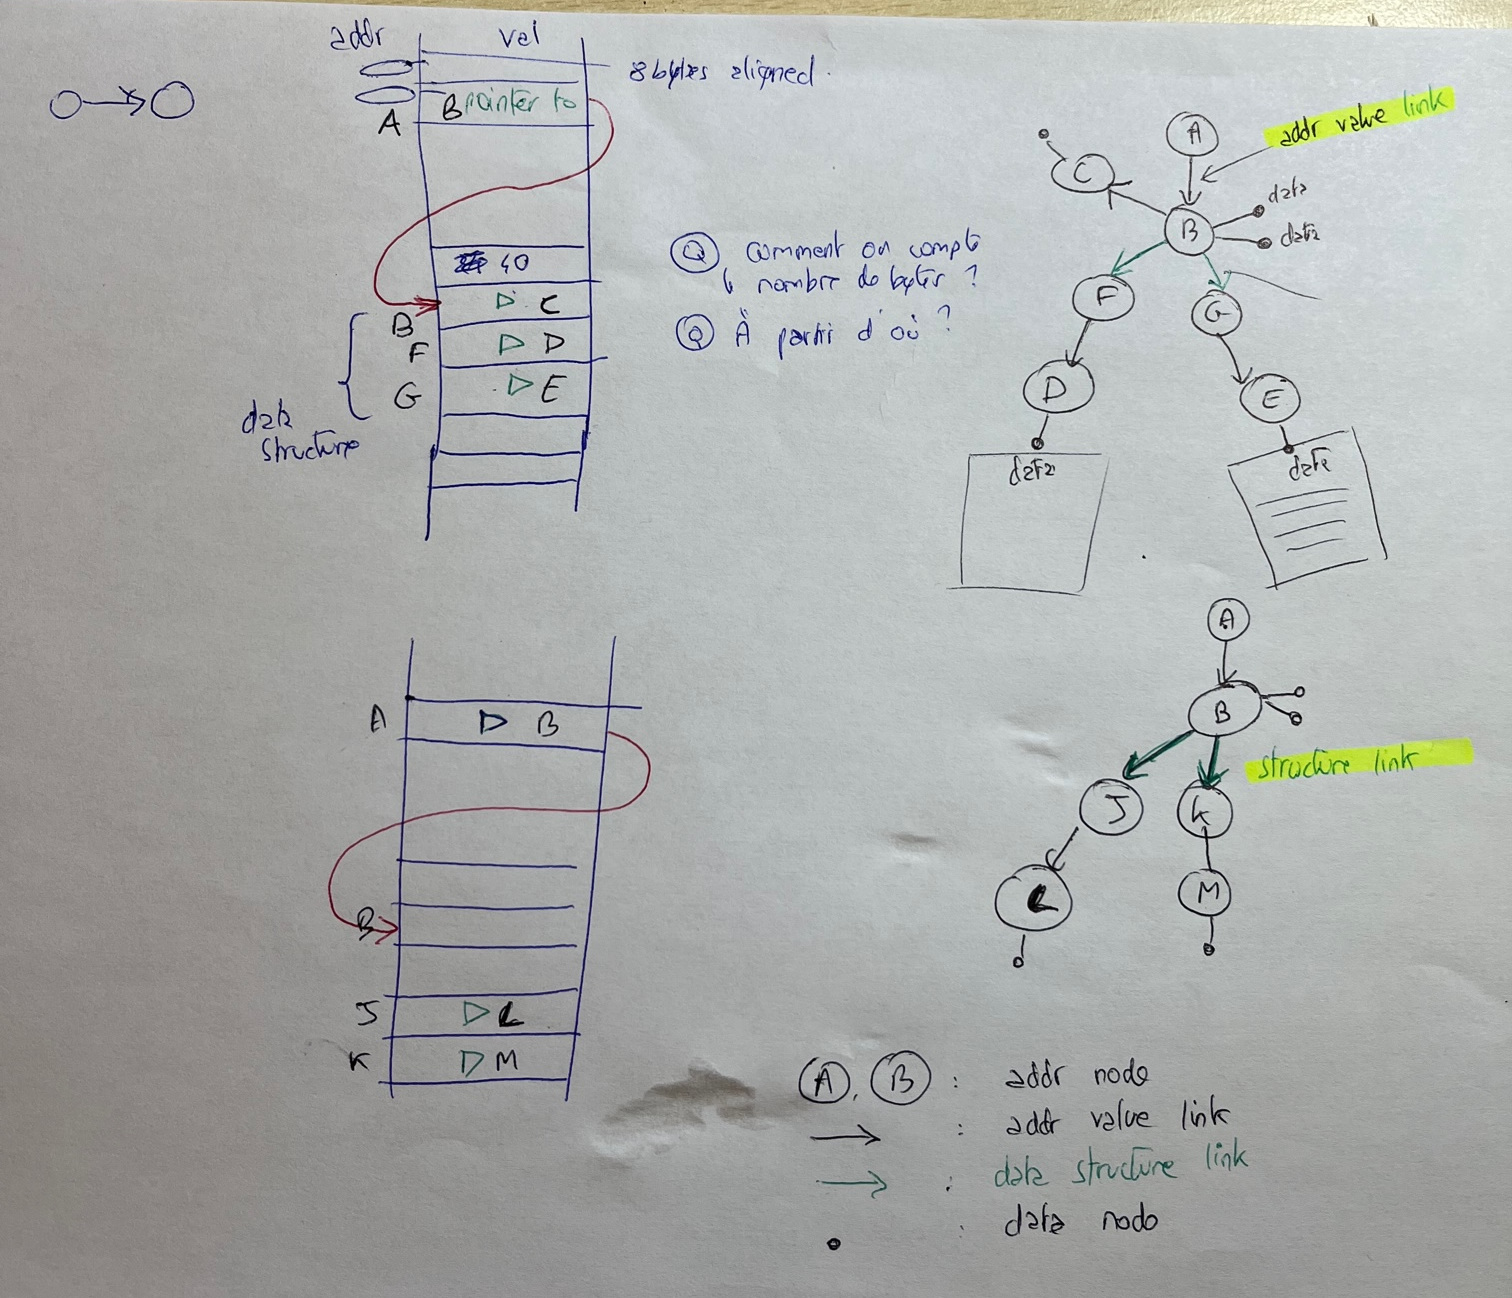 addr
val
8 bytes aligned.
A
B pointer to
40
B
▷ C
F
▷ D
G
▷ E
data
structure
Q comment on compte
nombre de bytes ?
Q À partir d'où ?
A
addr value link
C
B
data
data
F
G
D
E
data
data
A
▷ B
B
J
▷ L
K
▷ M
A
B
structure link
J
K
L
M
A, B : addr node
→ : addr value link
→ : data structure link
: data node